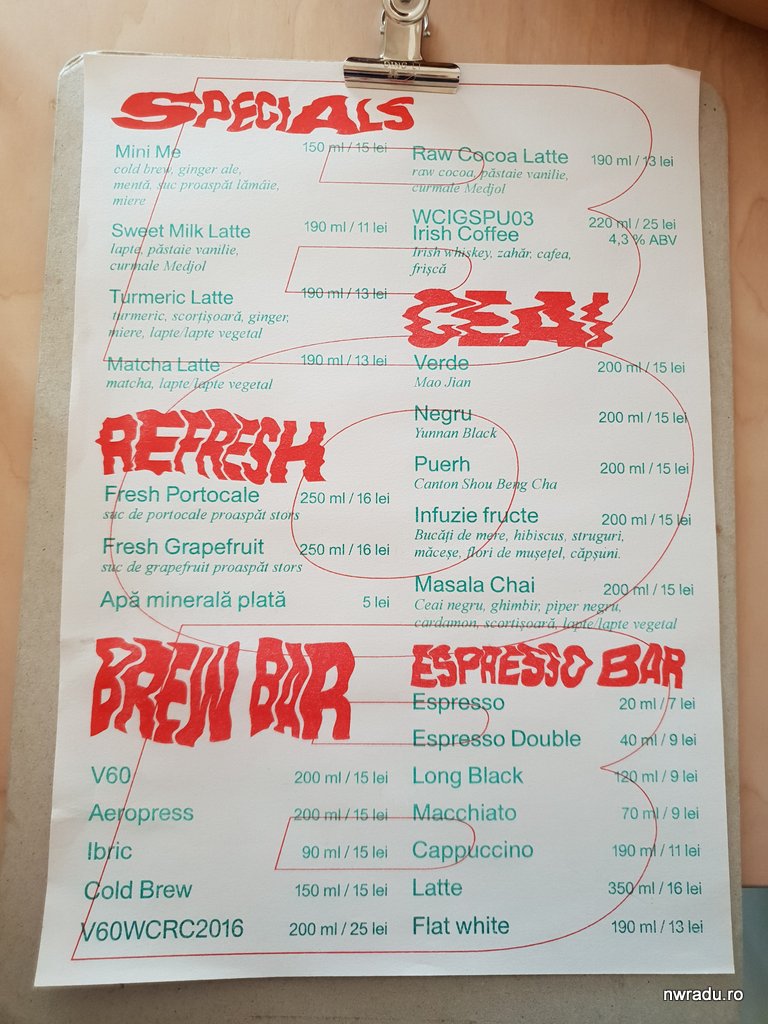 SPECIALS
Mini Me 150 ml / 15 lei
cold brew, ginger ale,
mentă, suc proaspăt lămâie,
miere
Sweet Milk Latte 190 ml / 11 lei
lapte, păstaie vanilie,
curmale Medjol
Turmeric Latte 190 ml / 13 lei
turmeric, scorțișoară, ginger,
miere, lapte/lapte vegetal
Matcha Latte 190 ml / 13 lei
matcha, lapte/lapte vegetal
REFRESH
Fresh Portocale 250 ml / 16 lei
suc de portocale proaspăt stors
Fresh Grapefruit 250 ml / 16 lei
suc de grapefruit proaspăt stors
Apă minerală plată 5 lei
BREW BAR
V60 200 ml / 15 lei
Aeropress 200 ml / 15 lei
Ibric 90 ml / 15 lei
Cold Brew 150 ml / 15 lei
V60WCRC2016 200 ml / 25 lei
Raw Cocoa Latte 190 ml / 13 lei
raw cocoa, păstaie vanilie,
curmale Medjol
WCIGSPU03 220 ml / 25 lei
Irish Coffee 4,3 % ABV
Irish whiskey, zahăr, cafea,
frișcă
CEAI
Verde 200 ml / 15 lei
Mao Jian
Negru 200 ml / 15 lei
Yunnan Black
Puerh 200 ml / 15 lei
Canton Shou Beng Cha
Infuzie fructe 200 ml / 15 lei
Bucăți de mere, hibiscus, struguri,
măceșe, flori de mușețel, căpșuni.
Masala Chai 200 ml / 15 lei
Ceai negru, ghimbir, piper negru,
cardamon, scortișoară, lapte/lapte vegetal
ESPRESSO BAR
Espresso 20 ml / 7 lei
Espresso Double 40 ml / 9 lei
Long Black 120 ml / 9 lei
Macchiato 70 ml / 9 lei
Cappuccino 190 ml / 11 lei
Latte 350 ml / 16 lei
Flat white 190 ml / 13 lei
nwradu.ro